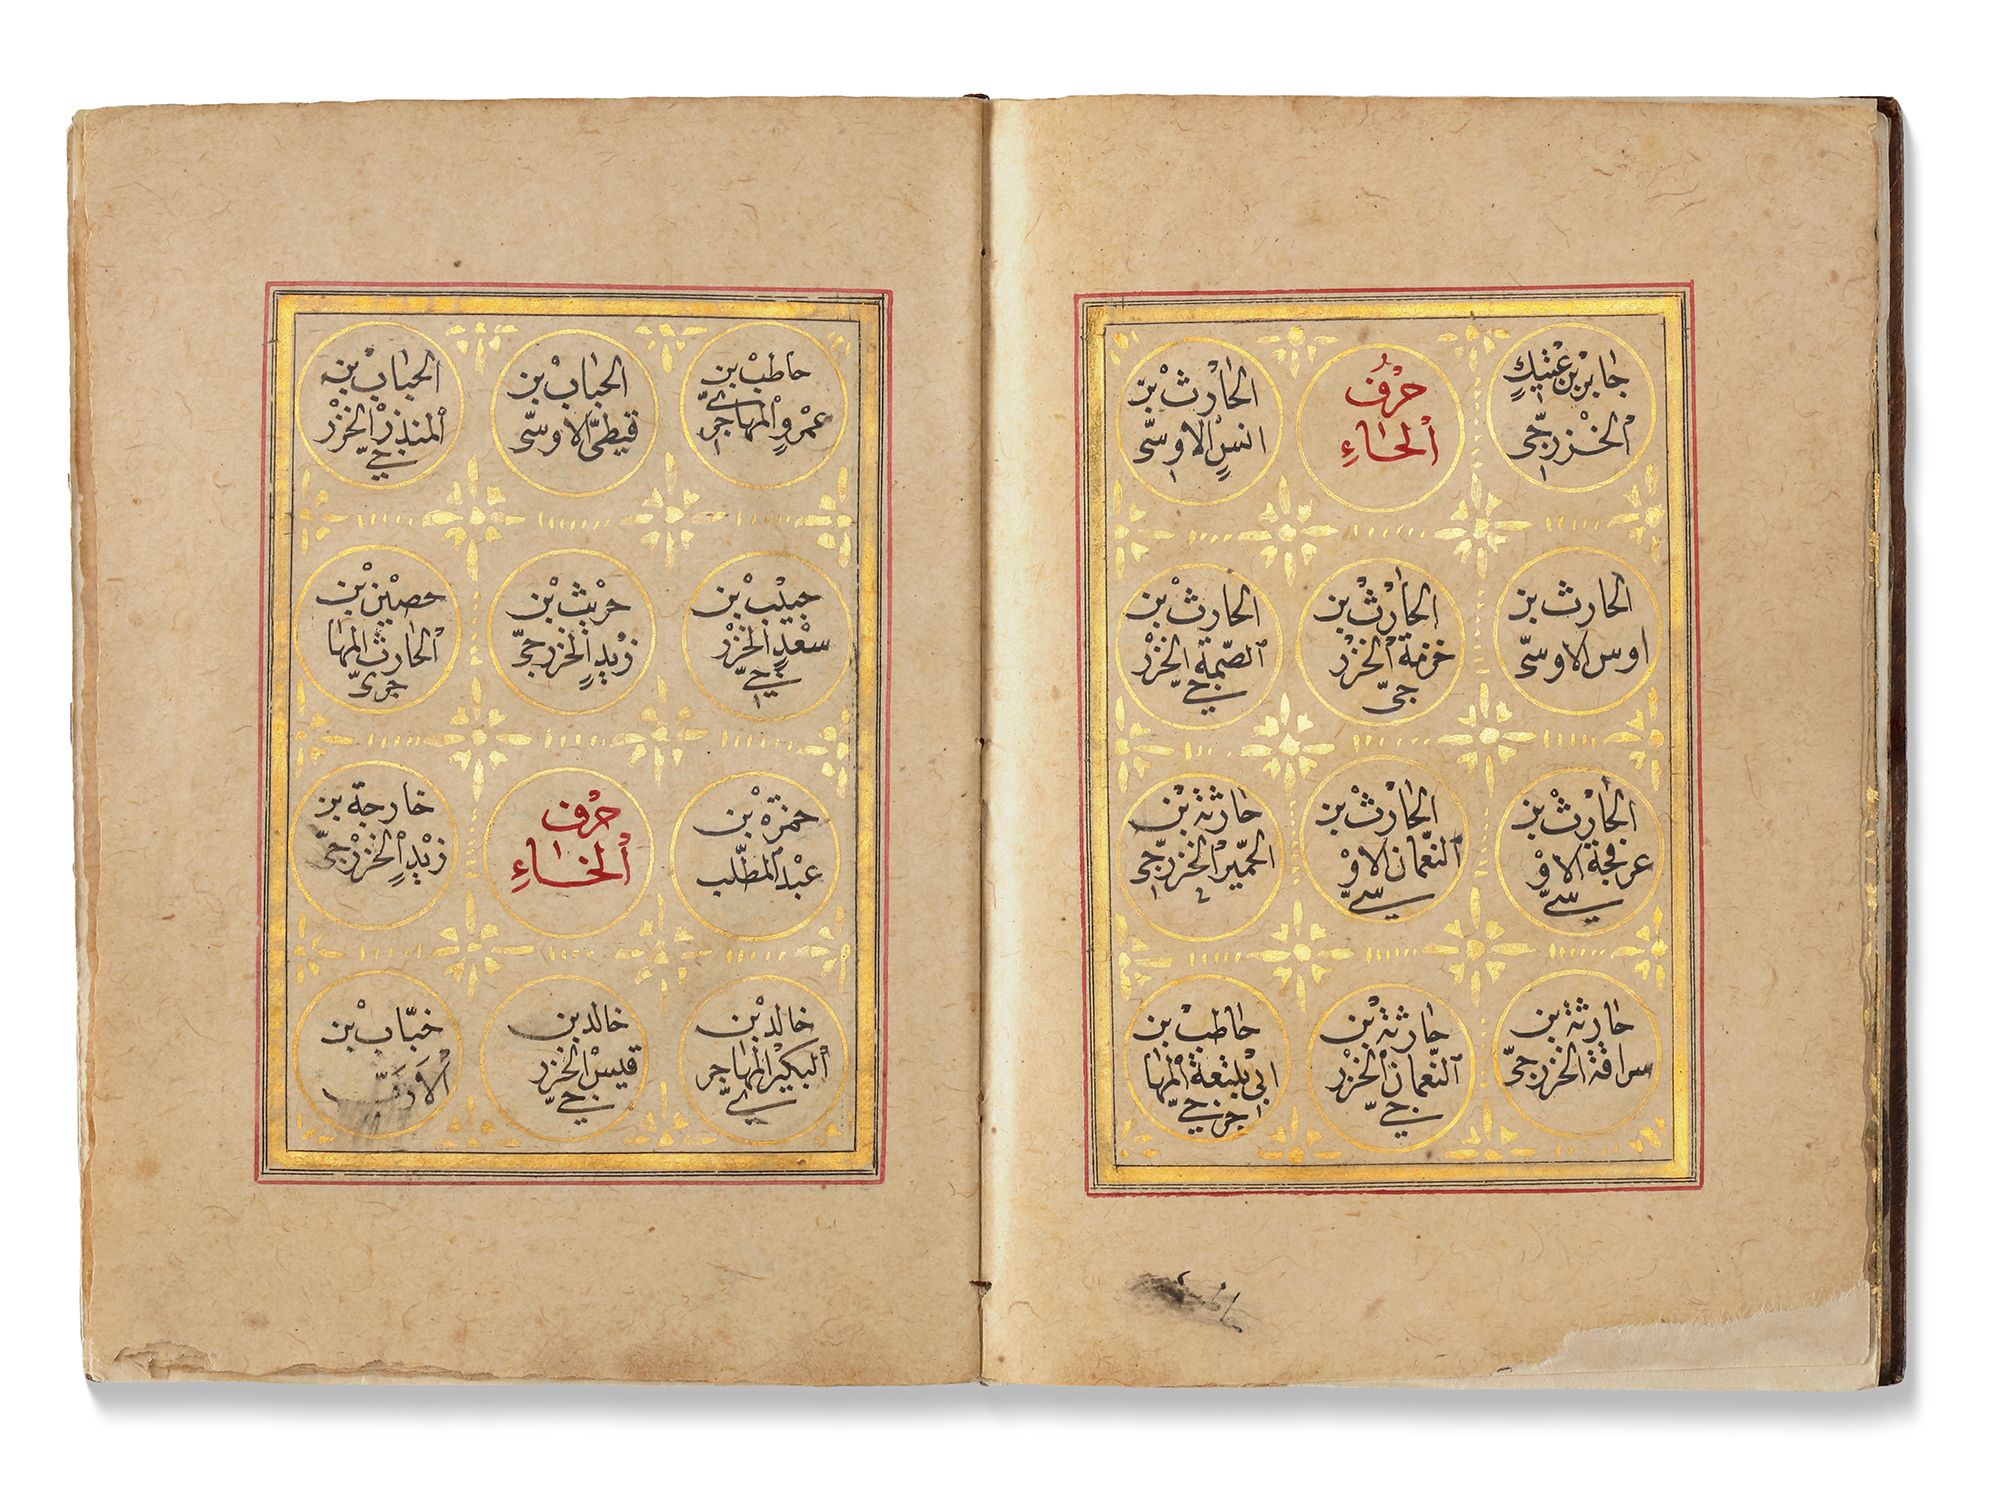 جابر بن عتيك
الخزرجي
حرف
الحاء
الحارث بن
انس الاوسي
الحارث بن
اوس الاوسي
الحارث بن
خزمة الخزر
جي
الحارث بن
الصمة الخزر
جي
الحارث بن
عرفجة الاو
سي
الحارث بن
النعمان الاو
سي
حارثة بن
الحمير الخزرجي
حارثة بن
سراقة الخزرجي
حارثة بن
النعمان الخزر
جي
حاطب بن
ابي بلتعة المها
جري
حاطب بن
عمرو المهاجر
ي
الحباب بن
قيظي الاوسي
الحباب بن
المنذر الخزر
جي
حبيب بن
سعد الخزر
جي
حريث بن
زيد الخزرجي
حصين بن
الحارث المها
جري
حمزة بن
عبد المطلب
حرف
الخاء
خارجة بن
زيد الخزرجي
خالد بن
البكير المهاجر
ي
خالد بن
قيس الخزر
جي
خباب بن
الأرت